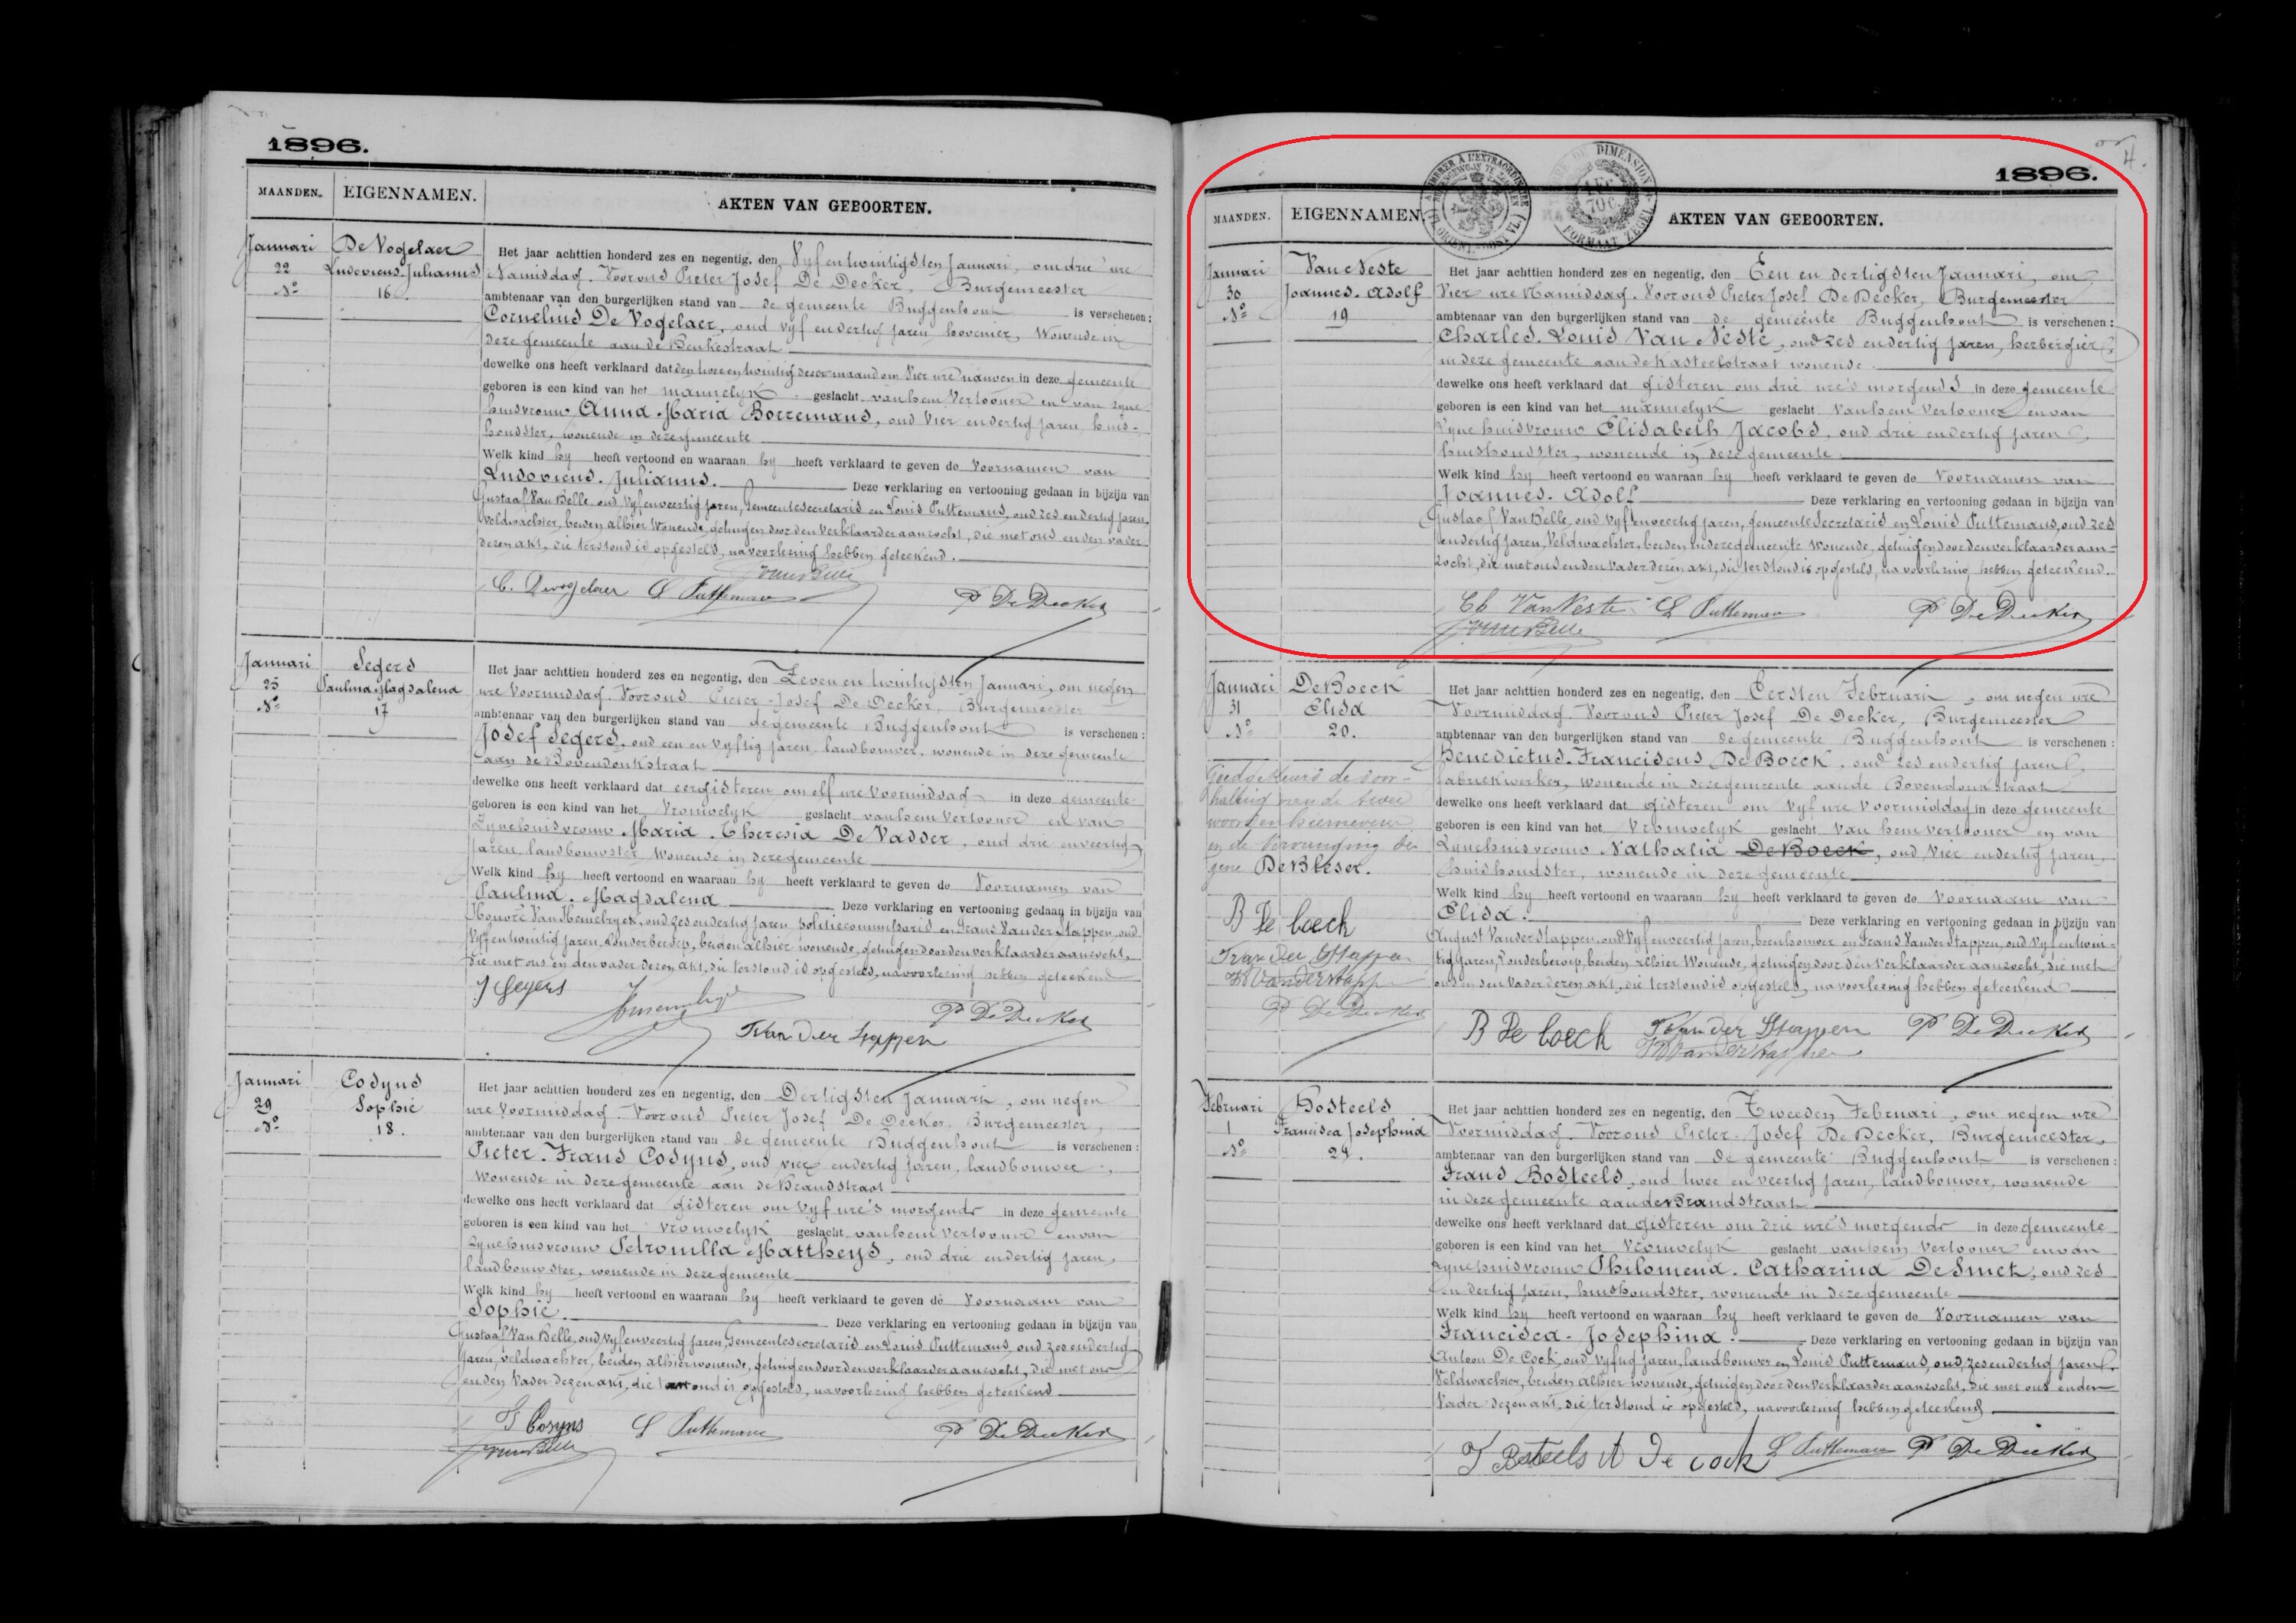 1896.
MAANDEN.
EIGENNAMEN.
AKTEN VAN GEBOORTEN.
Januari
22
No
De Vogelaer
Ludovicus-Julianus
16.
Het jaar achttien honderd zes en negentig, den Vyfentwintigsten Januari, om drie ure
Namiddag. Voor ons Pieter Josef De Decker, Burgemeester
ambtenaar van den burgerlijken stand van de gemeente Buggenhout is verschenen:
Cornelius De Vogelaer, oud vyf en dertig jaren, hovenier, wonende in
deze gemeente aan de Beukestraat
dewelke ons heeft verklaard dat den twee en twintig dezer maand om Vier ure in deze gemeente
geboren is een kind van het mannelyk geslacht van hem Vertooner en van zyne
huisvrouw Anna Maria Borremans, oud Vier en dertig jaren, huis-
houdster, wonende in deze gemeente
Welk kind hy heeft vertoond en waaraan hy heeft verklaard te geven de Voornamen van
Ludovicus. Julianus. Deze verklaring en vertooning gedaan in bijzijn van
Gustaaf Van Belle, oud Vyfenveertig jaren, Gemeentesecretaris en Louis Puttemans, oud zes en dertig jaren,
Veldwachter, beiden alhier wonende, getuigen door den verklaarder aanzocht, die met ons en den vader
dezen akt, die terstond is opgesteld, na voorlezing hebben geteekend.
C. Devogelaer L Putteman VanBelle P De Decker
Januari
25
No
Segers
Paulina Magdalena
17
Het jaar achttien honderd zes en negentig, den Zeven en twintigsten Januari, om negen
ure Voormiddag. Voor ons Pieter-Josef De Decker, Burgemeester
ambtenaar van den burgerlijken stand van de gemeente Buggenhout is verschenen:
Josef Segers, oud een en vyftig jaren, landbouwer, wonende in deze gemeente
aan de Bovendonkstraat
dewelke ons heeft verklaard dat eergisteren om elf ure Voormiddag in deze gemeente
geboren is een kind van het Vrouwelyk geslacht van hem Vertooner en van
Zyne huisvrouw Maria Theresia De Vadder, oud drie en veertig
jaren, landbouwster, wonende in deze gemeente
Welk kind hy heeft vertoond en waaraan hy heeft verklaard te geven de Voornamen van
Paulina. Magdalena Deze verklaring en vertooning gedaan in bijzijn van
Honoré Van Hemelryck, oud zes en dertig jaren, politiecommissaris en Frans Vander Stappen, oud
Vyf en twintig jaren, zonder beroep, beiden alhier wonende, getuigen door den verklaarder aanzocht,
die met ons en den vader dezen akt, die terstond is opgesteld, na voorlezing hebben geteekend
J Segers P De Decker
F Van Der Stappen
Januari
29
No
Cosyns
Sophie
18.
Het jaar achttien honderd zes en negentig, den Dertigsten Januari, om negen
ure Voormiddag. Voor ons Pieter Josef De Decker, Burgemeester,
ambtenaar van den burgerlijken stand van de gemeente Buggenhout is verschenen:
Pieter-Frans Cosyns, oud vier en dertig jaren, landbouwer,
wonende in deze gemeente aan de Brandstraat
dewelke ons heeft verklaard dat gisteren om vyf ure's morgends in deze gemeente
geboren is een kind van het vrouwelyk geslacht van hem Vertooner en van
zyne huisvrouw Petronilla Mattheys, oud drie en dertig jaren,
landbouwster, wonende in deze gemeente
Welk kind hy heeft vertoond en waaraan hy heeft verklaard te geven de Voornaam van
Sophie. Deze verklaring en vertooning gedaan in bijzijn van
Gustaaf Van Belle, oud vyfenveertig jaren, Gemeentesecretaris en Louis Puttemans, oud zes en dertig
jaren, veldwachter, beiden alhier wonende, getuigen door den verklaarder aanzocht, die met ons
en den vader dezen akt, die terstond is opgesteld, na voorlezing hebben geteekend
Cosyns L Putteman P De Decker
VanBelle
4.
1896.
MAANDEN.
EIGENNAMEN
AKTEN VAN GEBOORTEN.
FORMAAT ZEGEL
Januari
30
No
Van Neste
Joannes. Adolf
19
Het jaar achttien honderd zes en negentig, den Een en dertigsten Januari, om
Vier ure Namiddag. Voor ons Pieter Josef De Decker, Burgemeester
ambtenaar van den burgerlijken stand van de gemeente Buggenhout is verschenen:
Charles. Louis Van Neste, oud zes en dertig jaren, herbergier,
in deze gemeente aan de Kasteelstraat wonende
dewelke ons heeft verklaard dat gisteren om drie ure's morgends in deze gemeente
geboren is een kind van het mannelyk geslacht van hem Vertooner en van
Zyne huisvrouw Elisabeth Jacobs, oud drie en dertig jaren,
huishoudster, wonende in deze gemeente
Welk kind hy heeft vertoond en waaraan hy heeft verklaard te geven de Voornamen van
Joannes. Adolf Deze verklaring en vertooning gedaan in bijzijn van
Gustaaf Van Belle, oud vyfenveertig jaren, gemeente Secretaris en Louis Puttemans, oud zes
en dertig jaren, Veldwachter, beiden in deze gemeente wonende, getuigen door den verklaarder aan-
zocht, die met ons en den vader dezen akt, die terstond is opgesteld, na voorlezing hebben geteekend.
Ch VanNeste L Putteman P De Decker
VanBelle
Januari
31
No
De Boeck
Elisa
20.
Goedgekeurd de door-
haling van de twee
woorden hiernevens
en de vervanging der
gene De Bleser.
B De boeck
F Van der Stappen
P De Decker
Het jaar achttien honderd zes en negentig, den Eersten Februari, om negen ure
Voormiddag. Voor ons Pieter Josef De Decker, Burgemeester
ambtenaar van den burgerlijken stand van de gemeente Buggenhout is verschenen:
Benedictus. Franciscus De Boeck, oud zes en dertig jaren,
fabriekwerker, wonende in deze gemeente aan de Bovendonkstraat
dewelke ons heeft verklaard dat gisteren om vyf ure voormiddag in deze gemeente
geboren is een kind van het Vrouwelyk geslacht van hem vertooner en van
Zyne huisvrouw Nathalia De Boeck, oud Vier en dertig jaren,
huishoudster, wonende in deze gemeente
Welk kind hy heeft vertoond en waaraan hy heeft verklaard te geven de Voornaam van
Elisa. Deze verklaring en vertooning gedaan in bijzijn van
August Vander Stappen, oud Vyfenveertig jaren, beenhouwer en Frans Vander Stappen, oud Vyf en twin-
tig jaren, zonder beroep, beiden alhier wonende, getuigen door den verklaarder aanzocht, die met
ons en den vader dezen akt, die terstond is opgesteld, na voorlezing hebben geteekend
B De boeck F Van der Stappen P De Decker
Februari
1
No
Bosteels
Francisca Josephina
21.
Het jaar achttien honderd zes en negentig, den Tweeden Februari, om negen ure
Voormiddag. Voor ons Pieter Josef De Decker, Burgemeester
ambtenaar van den burgerlijken stand van de gemeente Buggenhout is verschenen:
Frans Bosteels, oud twee en veertig jaren, landbouwer, wonende
in deze gemeente aan de Brandstraat
dewelke ons heeft verklaard dat gisteren om drie ure's morgends in deze gemeente
geboren is een kind van het Vrouwelyk geslacht van hem Vertooner en van
zyne huisvrouw Philomena. Catharina De Smet, oud zes
en dertig jaren, huishoudster, wonende in deze gemeente
Welk kind hy heeft vertoond en waaraan hy heeft verklaard te geven de Voornamen van
Francisca-Josephina. Deze verklaring en vertooning gedaan in bijzijn van
Antoon De Cock, oud vyftig jaren, landbouwer en Louis Puttemans, oud zes en dertig jaren,
Veldwachter, beiden alhier wonende, getuigen door den verklaarder aanzocht, die met ons en den
Vader dezen akt, die terstond is opgesteld, na voorlezing hebben geteekend
F Bosteels A De Cock L Putteman P De Decker